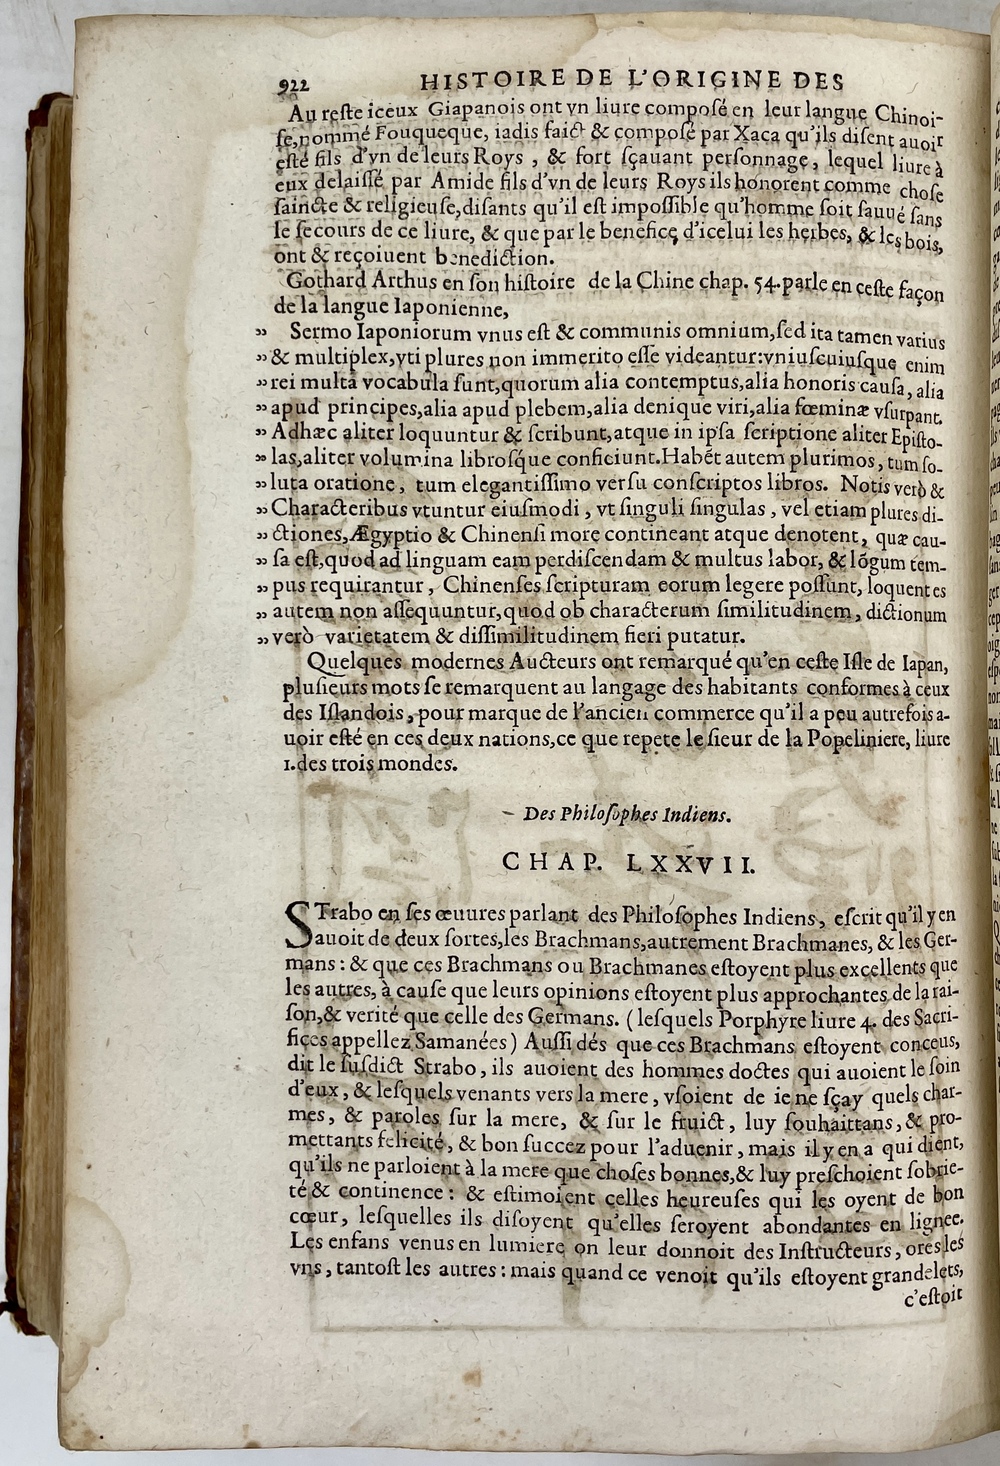 922 HISTOIRE DE L'ORIGINE DES
Au reſte iceux Giapanois ont vn liure compoſé en leur langue Chinoi-
ſe, nommé Fouqueque, iadis faict & compoſé par Xaca qu'ils diſent auoir
eſté fils d'vn de leurs Roys, & fort ſçauant perſonnage, lequel liure à
eux delaiſſé par Amide fils d'vn de leurs Roys ils honorent comme choſe
ſaincte & religieuſe, diſants qu'il eſt impoſſible qu'homme ſoit ſauué ſans
le ſecours de ce liure, & que par le benefice d'icelui les herbes, & les bois,
ont & reçoiuent benediction.
Gothard Arthus en ſon hiſtoire de la Chine chap. 54. parle en ceſte façon
de la langue Iaponienne,
„ Sermo Iaponiorum vnus eſt & communis omnium, ſed ita tamen varius
„ & multiplex, vti plures non immerito eſſe videantur: vniuſcuiuſque enim
„ rei multa vocabula ſunt, quorum alia contemptus, alia honoris cauſa, alia
„ apud principes, alia apud plebem, alia denique viri, alia fœminæ vſurpant.
„ Adhæc aliter loquuntur & ſcribunt, atque in ipſa ſcriptione aliter Epiſto-
„ las, aliter volumina libroſque conficiunt. Habẽt autem plurimos, tum ſo-
„ luta oratione, tum elegantiſſimo verſu conſcriptos libros. Notis verò &
„ Characteribus vtuntur eiuſmodi, vt ſinguli ſingulas, vel etiam plures di-
„ ctiones, Ægyptio & Chinenſi more contineant atque denotent, quæ cau-
„ ſa eſt, quod ad linguam eam perdiſcendam & multus labor, & lõgum tem-
„ pus requirantur, Chinenſes ſcripturam eorum legere poſſunt, loquentes
„ autem non aſſequuntur, quod ob characterum ſimilitudinem, dictionum
„ verò varietatem & diſſimilitudinem fieri putatur.
Quelques modernes Aucteurs ont remarqué qu'en ceſte Iſle de Iapan,
pluſieurs mots ſe remarquent au langage des habitants conformes à ceux
des Iſlandois, pour marque de l'ancien commerce qu'il a peu autrefois a-
uoir eſté en ces deux nations, ce que repete le ſieur de la Popeliniere, liure
1. des trois mondes.
Des Philoſophes Indiens.
CHAP. LXXVII.
STrabo en ſes œuures parlant des Philoſophes Indiens, eſcrit qu'il y en
auoit de deux ſortes, les Brachmans, autrement Brachmanes, & les Ger-
mans: & que ces Brachmans ou Brachmanes eſtoyent plus excellents que
les autres, à cauſe que leurs opinions eſtoyent plus approchantes de la rai-
ſon, & verité que celle des Germans. (leſquels Porphyre liure 4. des Sacri-
fices appellez Samanées) Auſſi dés que ces Brachmans eſtoyent conceus,
dit le ſuſdict Strabo, ils auoient des hommes doctes qui auoient le ſoin
d'eux, & leſquels venants vers la mere, vſoient de ie ne ſçay quels char-
mes, & paroles ſur la mere, & ſur le fruict, luy ſouhaittans, & pro-
mettants felicité, & bon ſuccez pour l'aduenir, mais il y en a qui dient,
qu'ils ne parloient à la mere que choſes bonnes, & luy preſchoient ſobrie-
té & continence: & eſtimoient celles heureuſes qui les oyent de bon
cœur, leſquelles ils diſoyent qu'elles ſeroyent abondantes en lignee.
Les enfans venus en lumiere on leur donnoit des Inſtructeurs, ores les
vns, tantoſt les autres: mais quand ce venoit qu'ils eſtoyent grandelets,
c'eſtoit